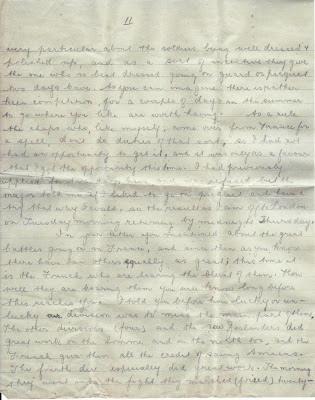 11
very particular about the soldiers being well dressed &
polished up, and as a sort of incentive they give
the one who is best dressed going on guard or picquet
two days leave. As you can imagine there is rather
keen competition, for a couple of days in the summer
to go where you like are worth having. As a rule
the chaps who, like myself, come over from France for
a spell, don't do duties of that sort, so I had not
had an opportunity to get it, and it was only as a favour
that I got the opportunity this time. I had previously
applied for
major
try that way
on Tuesday morning returning by midnight Thursday.
In your letter you mentioned about the great
battles going on in France, and since then as you know
there have been others equally as great; this time it
is the French who are bearing the brunt of them. How
well they are bearing them you will know long before
this reaches you. I told you before how lucky or un-
lucky our division was to miss the main part of them.
The other divisions (fours) and the New Zealanders did
great work on the Somme, and in the north too, and the
French give them all the credit of saving Amiens.
The fourth div. especially did great work. The morning
they went into the fight they marched (forced) twenty-